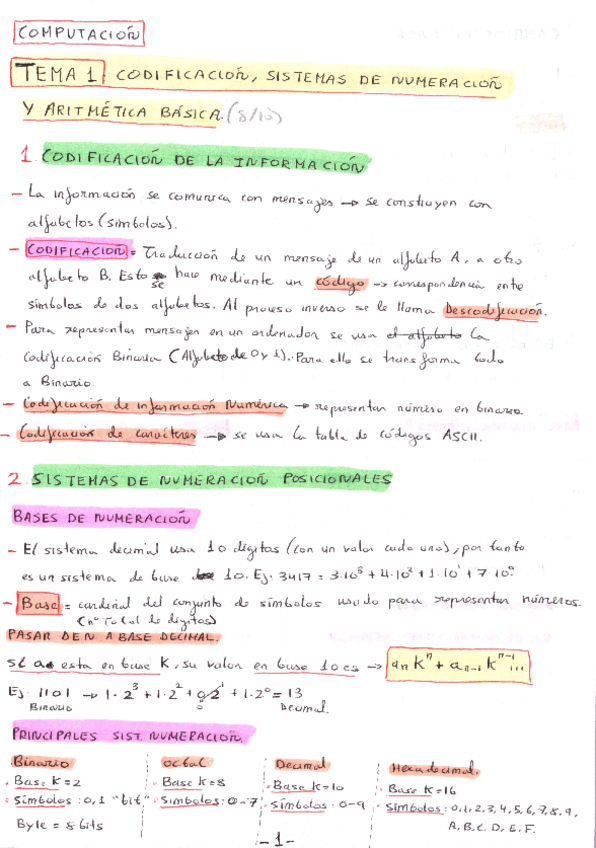 COMPUTACIÓN
TEMA 1 CODIFICACIÓN, SISTEMAS DE NUMERACIÓN
Y ARITMÉTICA BÁSICA. (8/10)
1. CODIFICACIÓN DE LA INFORMACIÓN
- La información se comunica con mensajes → se construyen con
alfabetos (símbolos).
- CODIFICACIÓN = Traducción de un mensaje de un alfabeto A, a otro
alfabeto B. Esto se hace mediante un código → correspondencia entre
símbolos de dos alfabetos. Al proceso inverso se le llama Descodificación.
- Para representar mensajes en un ordenador se usa el alfabeto la
codificación Binaria (Alfabeto de 0 y 1). Para ello se transforma todo
a Binario.
- Codificación de información Numérica → representar número en binario.
- Codificación de caracteres → se usa la tabla de códigos ASCII.
2. SISTEMAS DE NUMERACIÓN POSICIONALES
BASES DE NUMERACIÓN
- El sistema decimal usa 10 dígitos (con un valor cada uno), por tanto
es un sistema de base 10. Ej. 3417 = 3·10³ + 4·10² + 1·10¹ + 7·10⁰
- Base = cardinal del conjunto de símbolos usado para representar números.
(nº Total de dígitos)
PASAR DE N A BASE DECIMAL.
si a esta en base K, su valor en base 10 es → aₙKⁿ + aₙ₋₁Kⁿ⁻¹...
Ej. 1101 → 1·2³ + 1·2² + 0·2¹ + 1·2⁰ = 13
Binario Decimal.
PRINCIPALES SIST. NUMERACIÓN.
Binario octal Decimal Hexadecimal.
· Base K=2 · Base K=8 · Base K=10 · Base K=16
· Símbolos: 0,1 "bit" · Símbolos: 0-7 · Símbolos: 0-9 · Símbolos: 0,1,2,3,4,5,6,7,8,9,
Byte = 8 bits A,B,C,D,E,F.
-1-